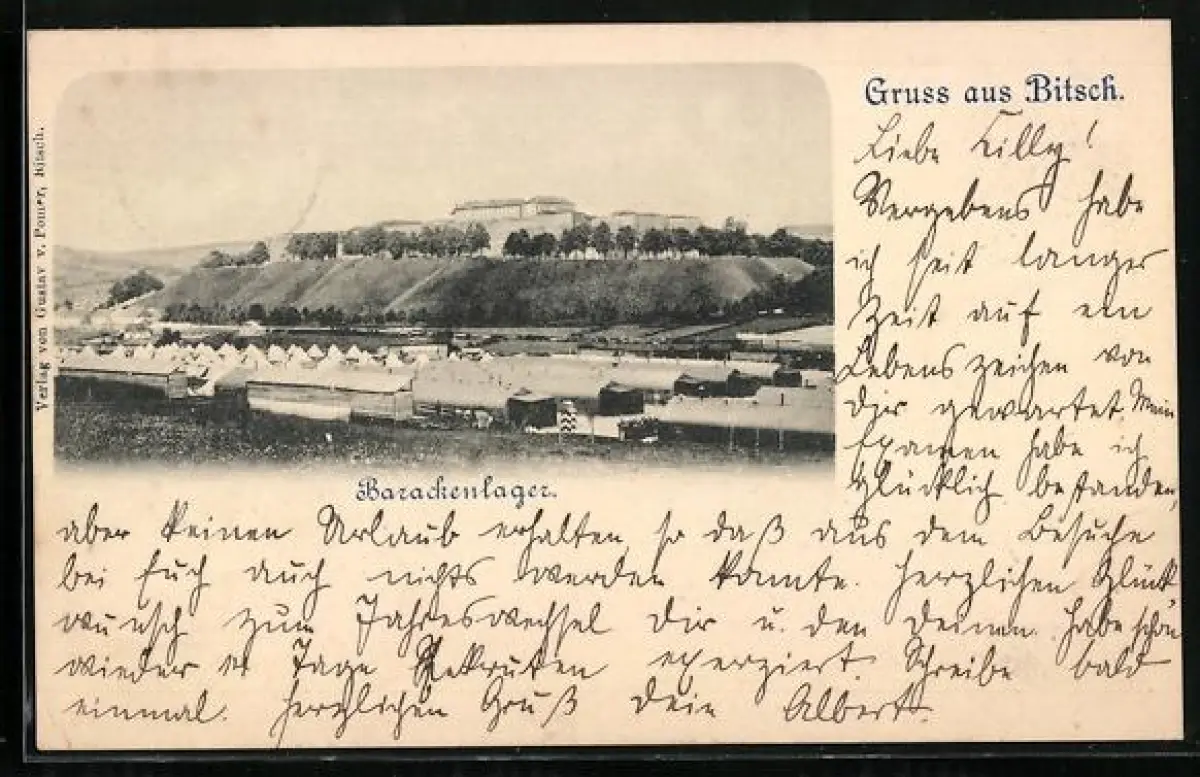 Gruss aus Bitsch.
Verlag von Gustav v. Pomer, Bitsch.
Barackenlager.
Liebe Cilly!
Vergebens habe
ich seit langer
Zeit auf ein
Lebenszeichen von
Dir gewartet. Mein
Examen habe ich
Glücklich bestanden,
aber keinen Urlaub erhalten, so daß aus dem Besuche
bei Euch auch nichts werden konnte. Herzlichen Glück
wunsch zum Jahreswechsel Dir u. den Deinen. Habe schon
wieder Tage Rekruten exerziert. Schreibe bald
einmal. Herzlichen Gruß Dein Albert.